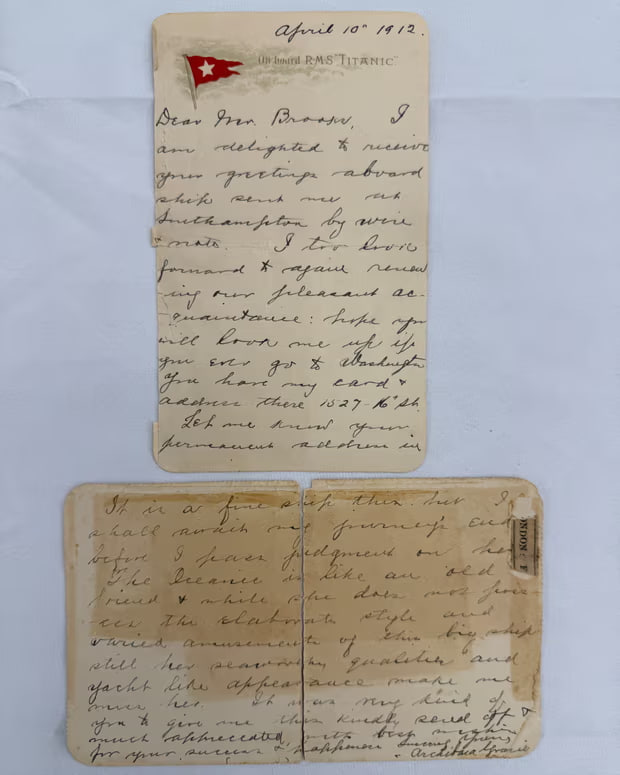 April 10th 1912.
On board R.M.S "TITANIC"
Dear Mr. Brooks, I
am delighted to receive
your greetings aboard
ship sent me at
Southampton by wire
& note. I too look
forward to again renew
-ing our pleasant ac-
quaintance: hope you
will look me up if
you ever go to Washington
You have my card &
address there 1527-16" St.
Let me know your
permanent address in
It is a fine ship this but I
shall await my journey's end
before I pass judgment on her
The Oceanic is like an old
friend & while she does not poss-
ess the elaborate style and
varied amusements of this big ship
still her seaworthy qualities and
yacht like appearance make me
miss her. It was very kind of
you to give me this kindly send off &
much appreciated, with best wishes
for your success & happiness Sincerely yours
Archibald Gracie
ONDON &